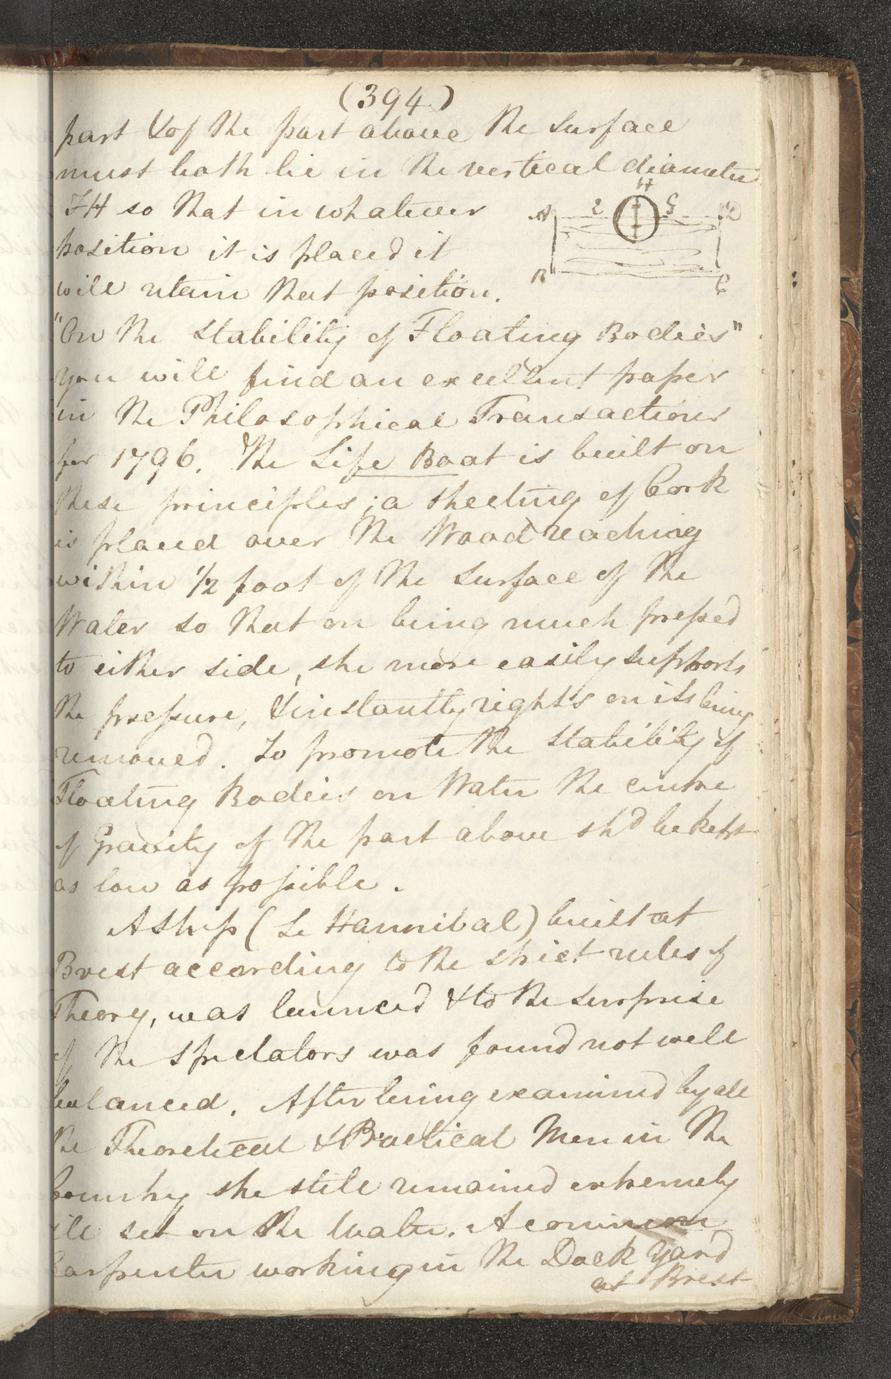 (394)
part & of the part above the surface
must both lie in the vertical diameter
FH so that in whatever
position it is placed it
will retain that position.
H
A E G D
B C
"On the Stability of Floating Bodies"
you will find an excellent paper
in the Philosophical Transactions
for 1796. The Life Boat is built on
these principles; a sheeting of Cork
is placed over the Wood reaching
within 1/2 foot of the surface of the
Water so that on being much preſsed
to either side, she more easily supports
the preſsure, & instantly rights on its being
removed. To promote the stability of
Floating Bodies on Water the centre
of Gravity of the part above sh'd be kept
as low as poſsible.
A Ship (Le Hannibal) built at
Brest according to the strict rules of
Theory, was launced & to the surprise
of the Spectators was found not well
balanced. After being examined by all
the Theoretical & Practical Men in the
Country she still remained extremely
ill set on the Water. A common
Carpenter working in the Dock Yard
at Brest